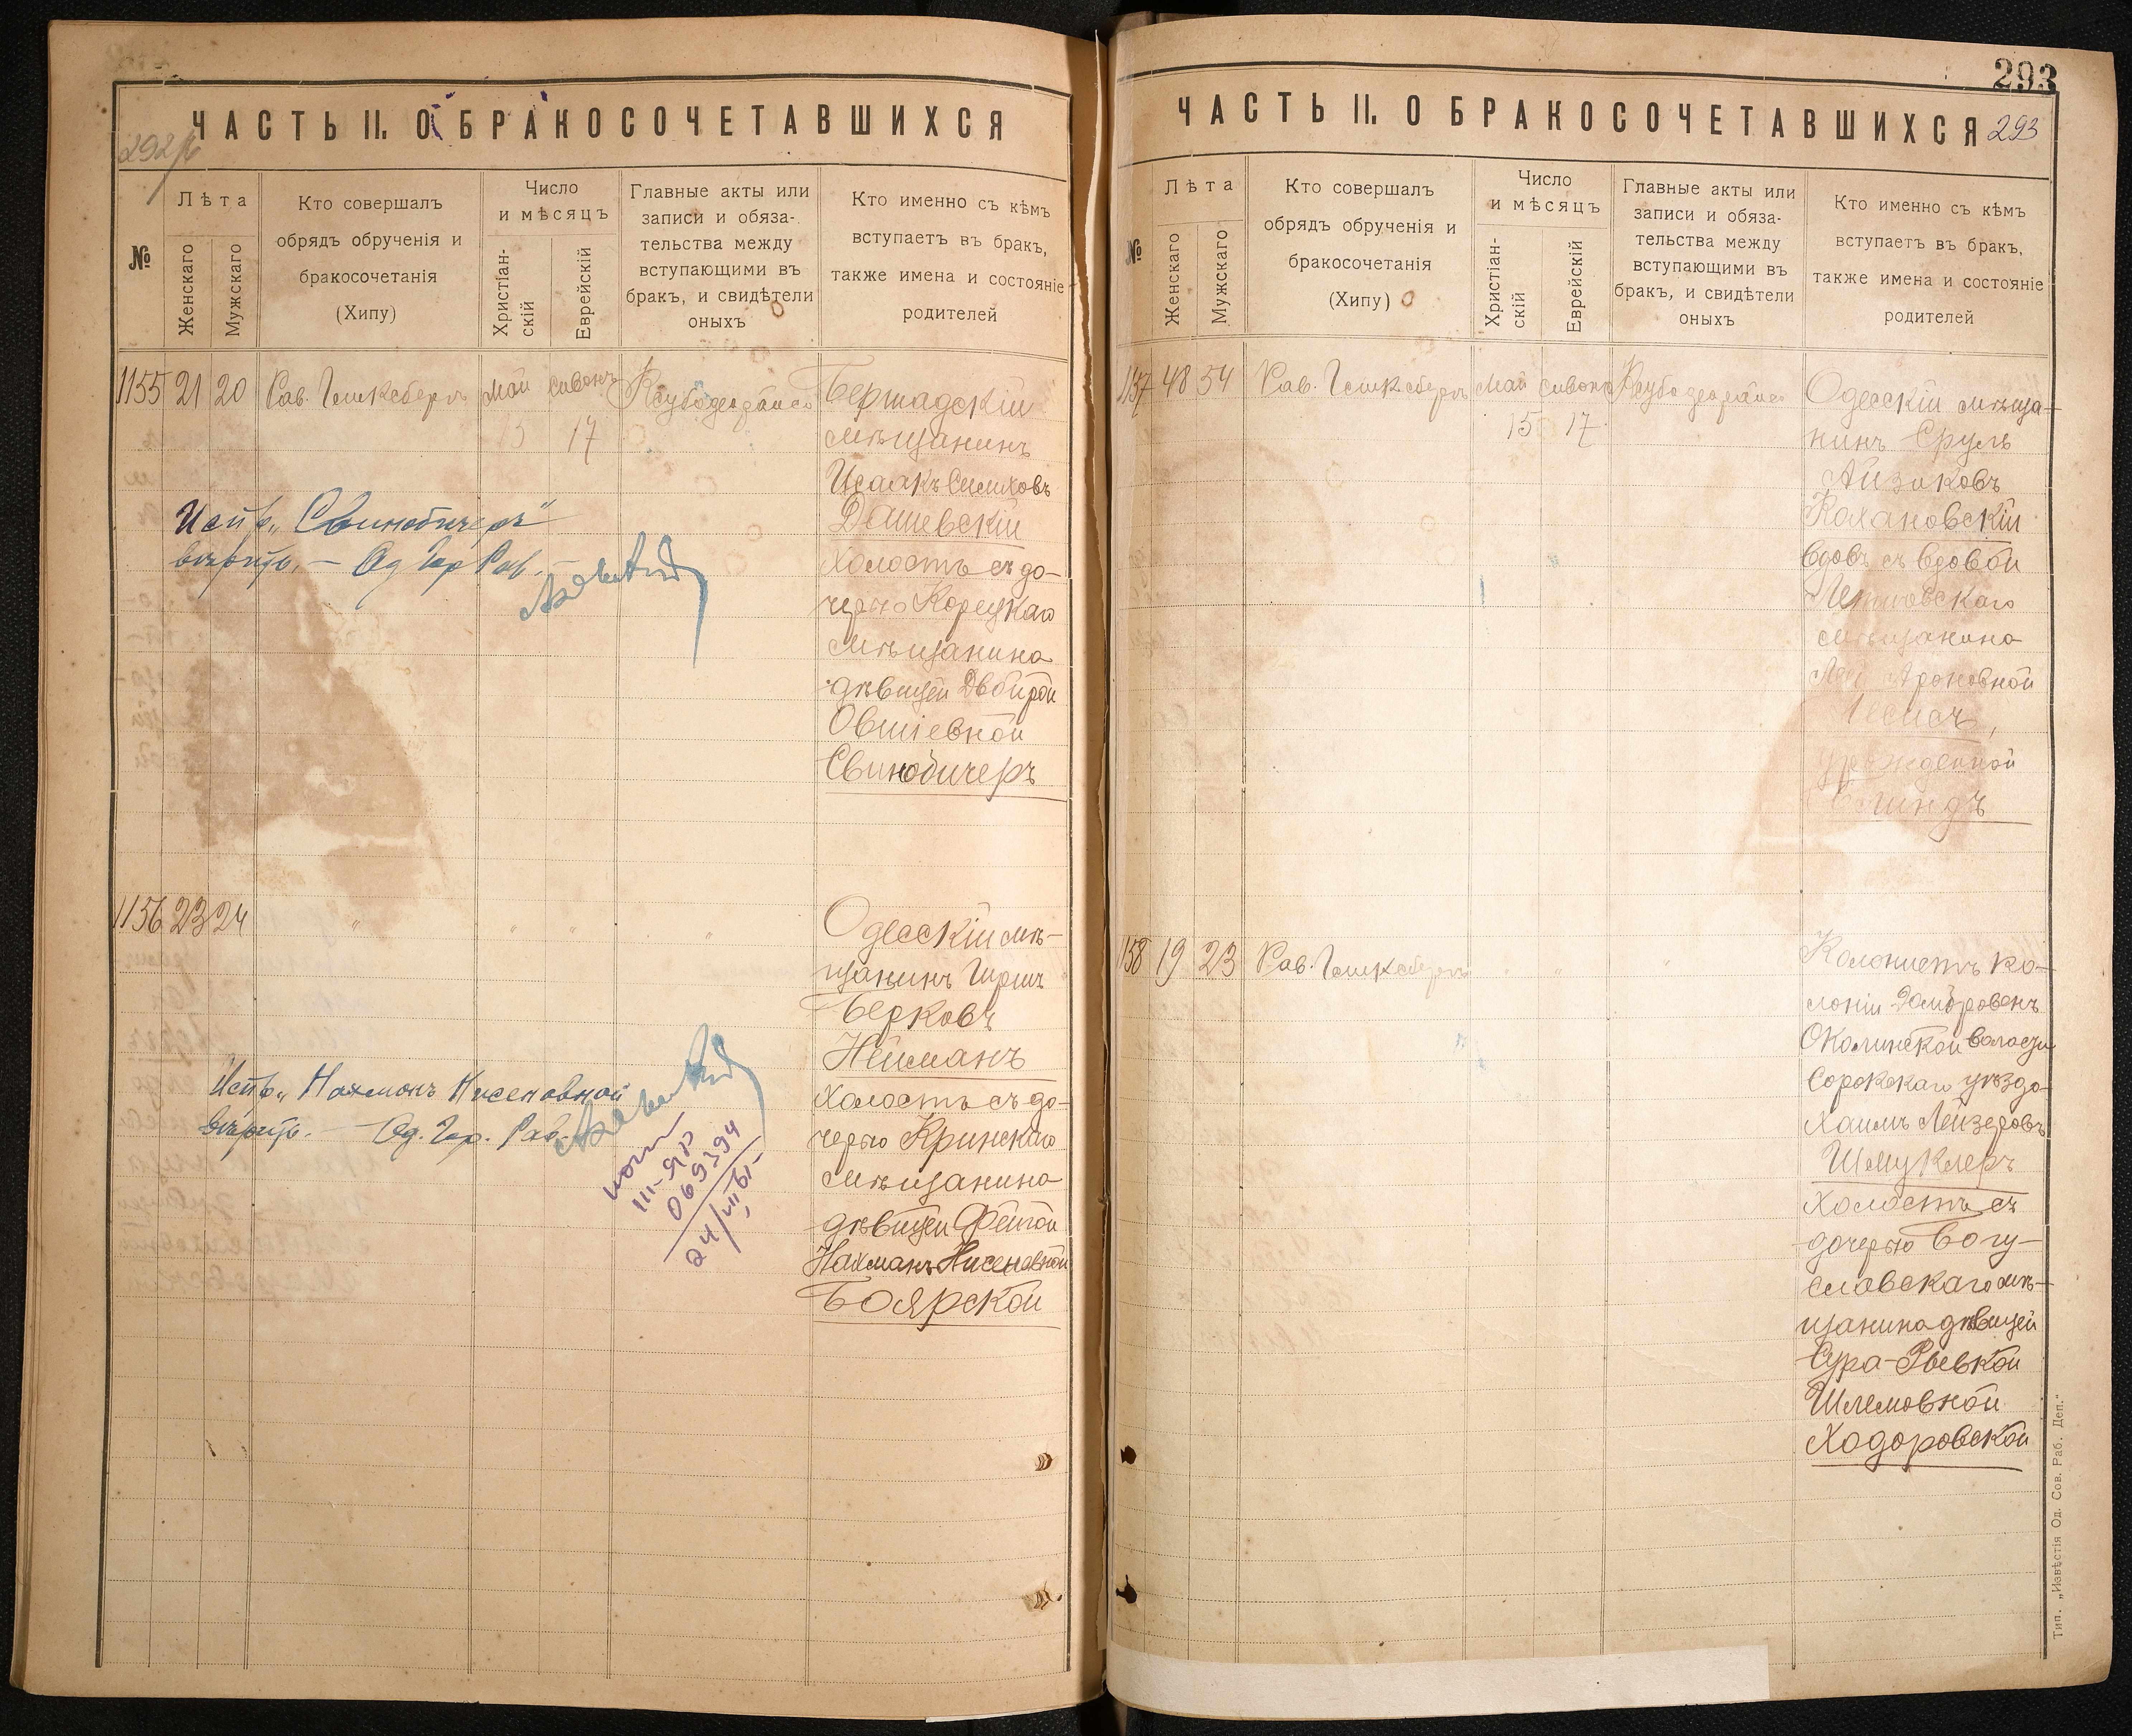 ЧАСТЬ II. О БРАКОСОЧЕТАВШИХСЯ
№
Лѣта
Женскаго
Мужскаго
Кто совершалъ
обрядъ обрученія и
бракосочетанія
(Хипу)
Число
и мѣсяцъ
Христіан-
скій
Еврейскій
Главные акты или
записи и обяза-
тельства между
вступающими въ
бракъ, и свидѣтели
оныхъ
Кто именно съ кѣмъ
вступаетъ въ бракъ,
также имена и состояніе
родителей
1155 21 20 Рав. Май Сивонъ
15 17
Бершадскій
мѣщанинъ
Исаакъ
Дашевскій
холостъ съ до-
черью Корецкаго
мѣщанина
дѣвицей Двойрой
Овшіевной
Свинобичеръ
Испр. „Свинобичеръ"
вѣрить. — Од. Гор. Рав.
1156 23 24 " " " "
Одесскій мѣ-
щанинъ Гершъ
Берковъ
Нейманъ
холостъ съ до-
черью Кринскаго
мѣщанина
дѣвицей Фейгой
Нахманъ Нисеновной
Боярской
Испр. „Нахманъ Нисеновной
вѣрить. — Од. Гор. Рав.
III-ЯР
069394
293
ЧАСТЬ II. О БРАКОСОЧЕТАВШИХСЯ 293
№
Лѣта
Женскаго
Мужскаго
Кто совершалъ
обрядъ обрученія и
бракосочетанія
(Хипу)
Число
и мѣсяцъ
Христіан-
скій
Еврейскій
Главные акты или
записи и обяза-
тельства между
вступающими въ
бракъ, и свидѣтели
оныхъ
Кто именно съ кѣмъ
вступаетъ въ бракъ,
также имена и состояніе
родителей
1157 48 54 Рав. Май Сивонъ
15 17
Одесскій мѣща-
нинъ Сруль
Айзиковъ
Кохановскій
вдовъ съ вдовой
мѣщанина
Ароновной
урожденной
1158 19 23 Рав. " "
Колонистъ ко-
лоніи Домбровенъ
Околинской волости
Сорокскаго уѣзда
Хаимъ Лейзеровъ
Шмуклеръ
холостъ съ
дочерью Богу-
славскаго мѣ-
щанина дѣвицей
Сура-Ривкой
Шлемовной
Ходоровской
Тип. „Извѣстія Од. Сов. Раб. Деп."